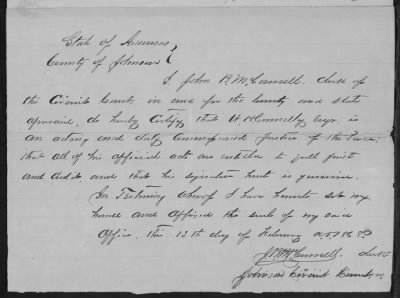 State of
County of Johnson
I John P. McConnell. Clerk of
the Circuit Court in and for the County and State
aforesaid, do hereby Certify that H. McConnelly Esqr. is
an acting and duly Commissioned Justice of the Peace
that all of his official acts are entitled to full faith
and credit and that his signature hereto is genuine.
In Testimony Whereof I have hereunto set my
hand and Affixed the seal of my said
Office. this 13th day of February
McConnell. Clerk
Johnson Circuit Court